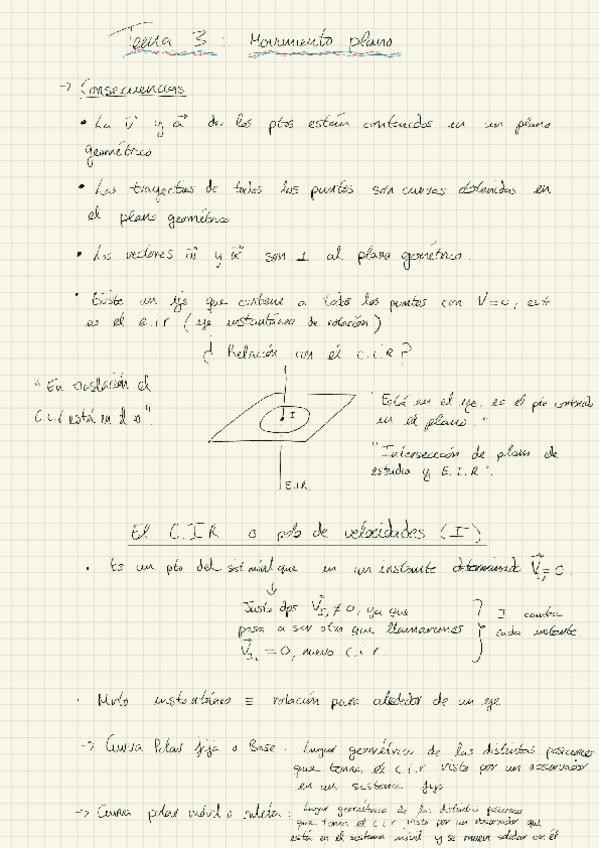 Tema 3: Movimiento plano
→ Consecuencias
• La v⃗ y a⃗ de los ptos están contenidos en un plano
geométrico
• Las trayectorias de todos los puntos son curvas contenidas en
el plano geométrico
• Los vectores ω⃗ y α⃗ son ⊥ al plano geométrico.
• Existe un eje que contiene a todos los puntos con V=0, este
es el e.i.r (eje instantáneo de rotación)
¿Relación con el C.I.R?
"En traslación el
C.I.R está en el ∞".
I
E.I.R.
"Está en el eje, es el pto contenido
en el plano."
"Intersección de plano de
estudio y E.I.R".
El C.I.R o polo de velocidades (I)
• Es un pto del sist móvil que en un instante determinado V⃗I₁ = 0.
↓
Justo dps V⃗I₁ ≠ 0, ya que
pasa a ser otro que llamaremos
V⃗I₂ = 0, nuevo C.I.R.
I cambia
cada instante.
• Mvto instantáneo ≡ rotación pura alrededor de un eje
→ Curva Polar fija o Base: Lugar geométrico de las distintas posiciones
que toma el c.i.r visto por un observador
en un sistema fijo
→ Curva polar móvil o ruleta: Lugar geométrico de las distintas posiciones
que toma el c.i.r visto por un observador que
está en el sistema móvil y se mueve solidar con él